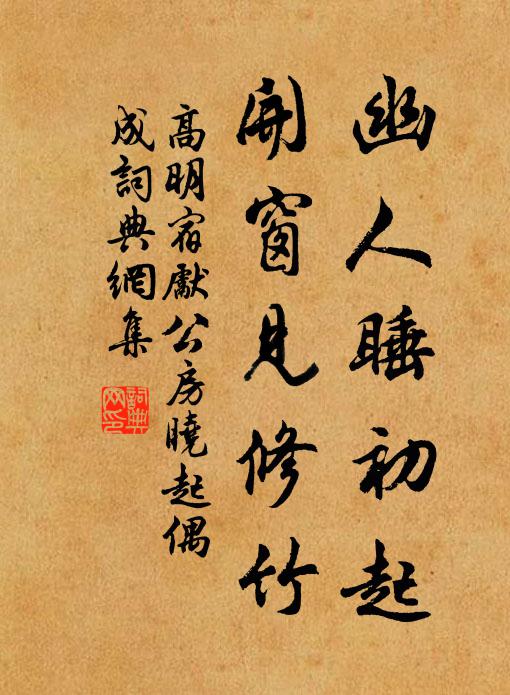 幽人睡初起
開窗見修竹
高明宿獻公房曉起偶
成詞典網集
詞典網印